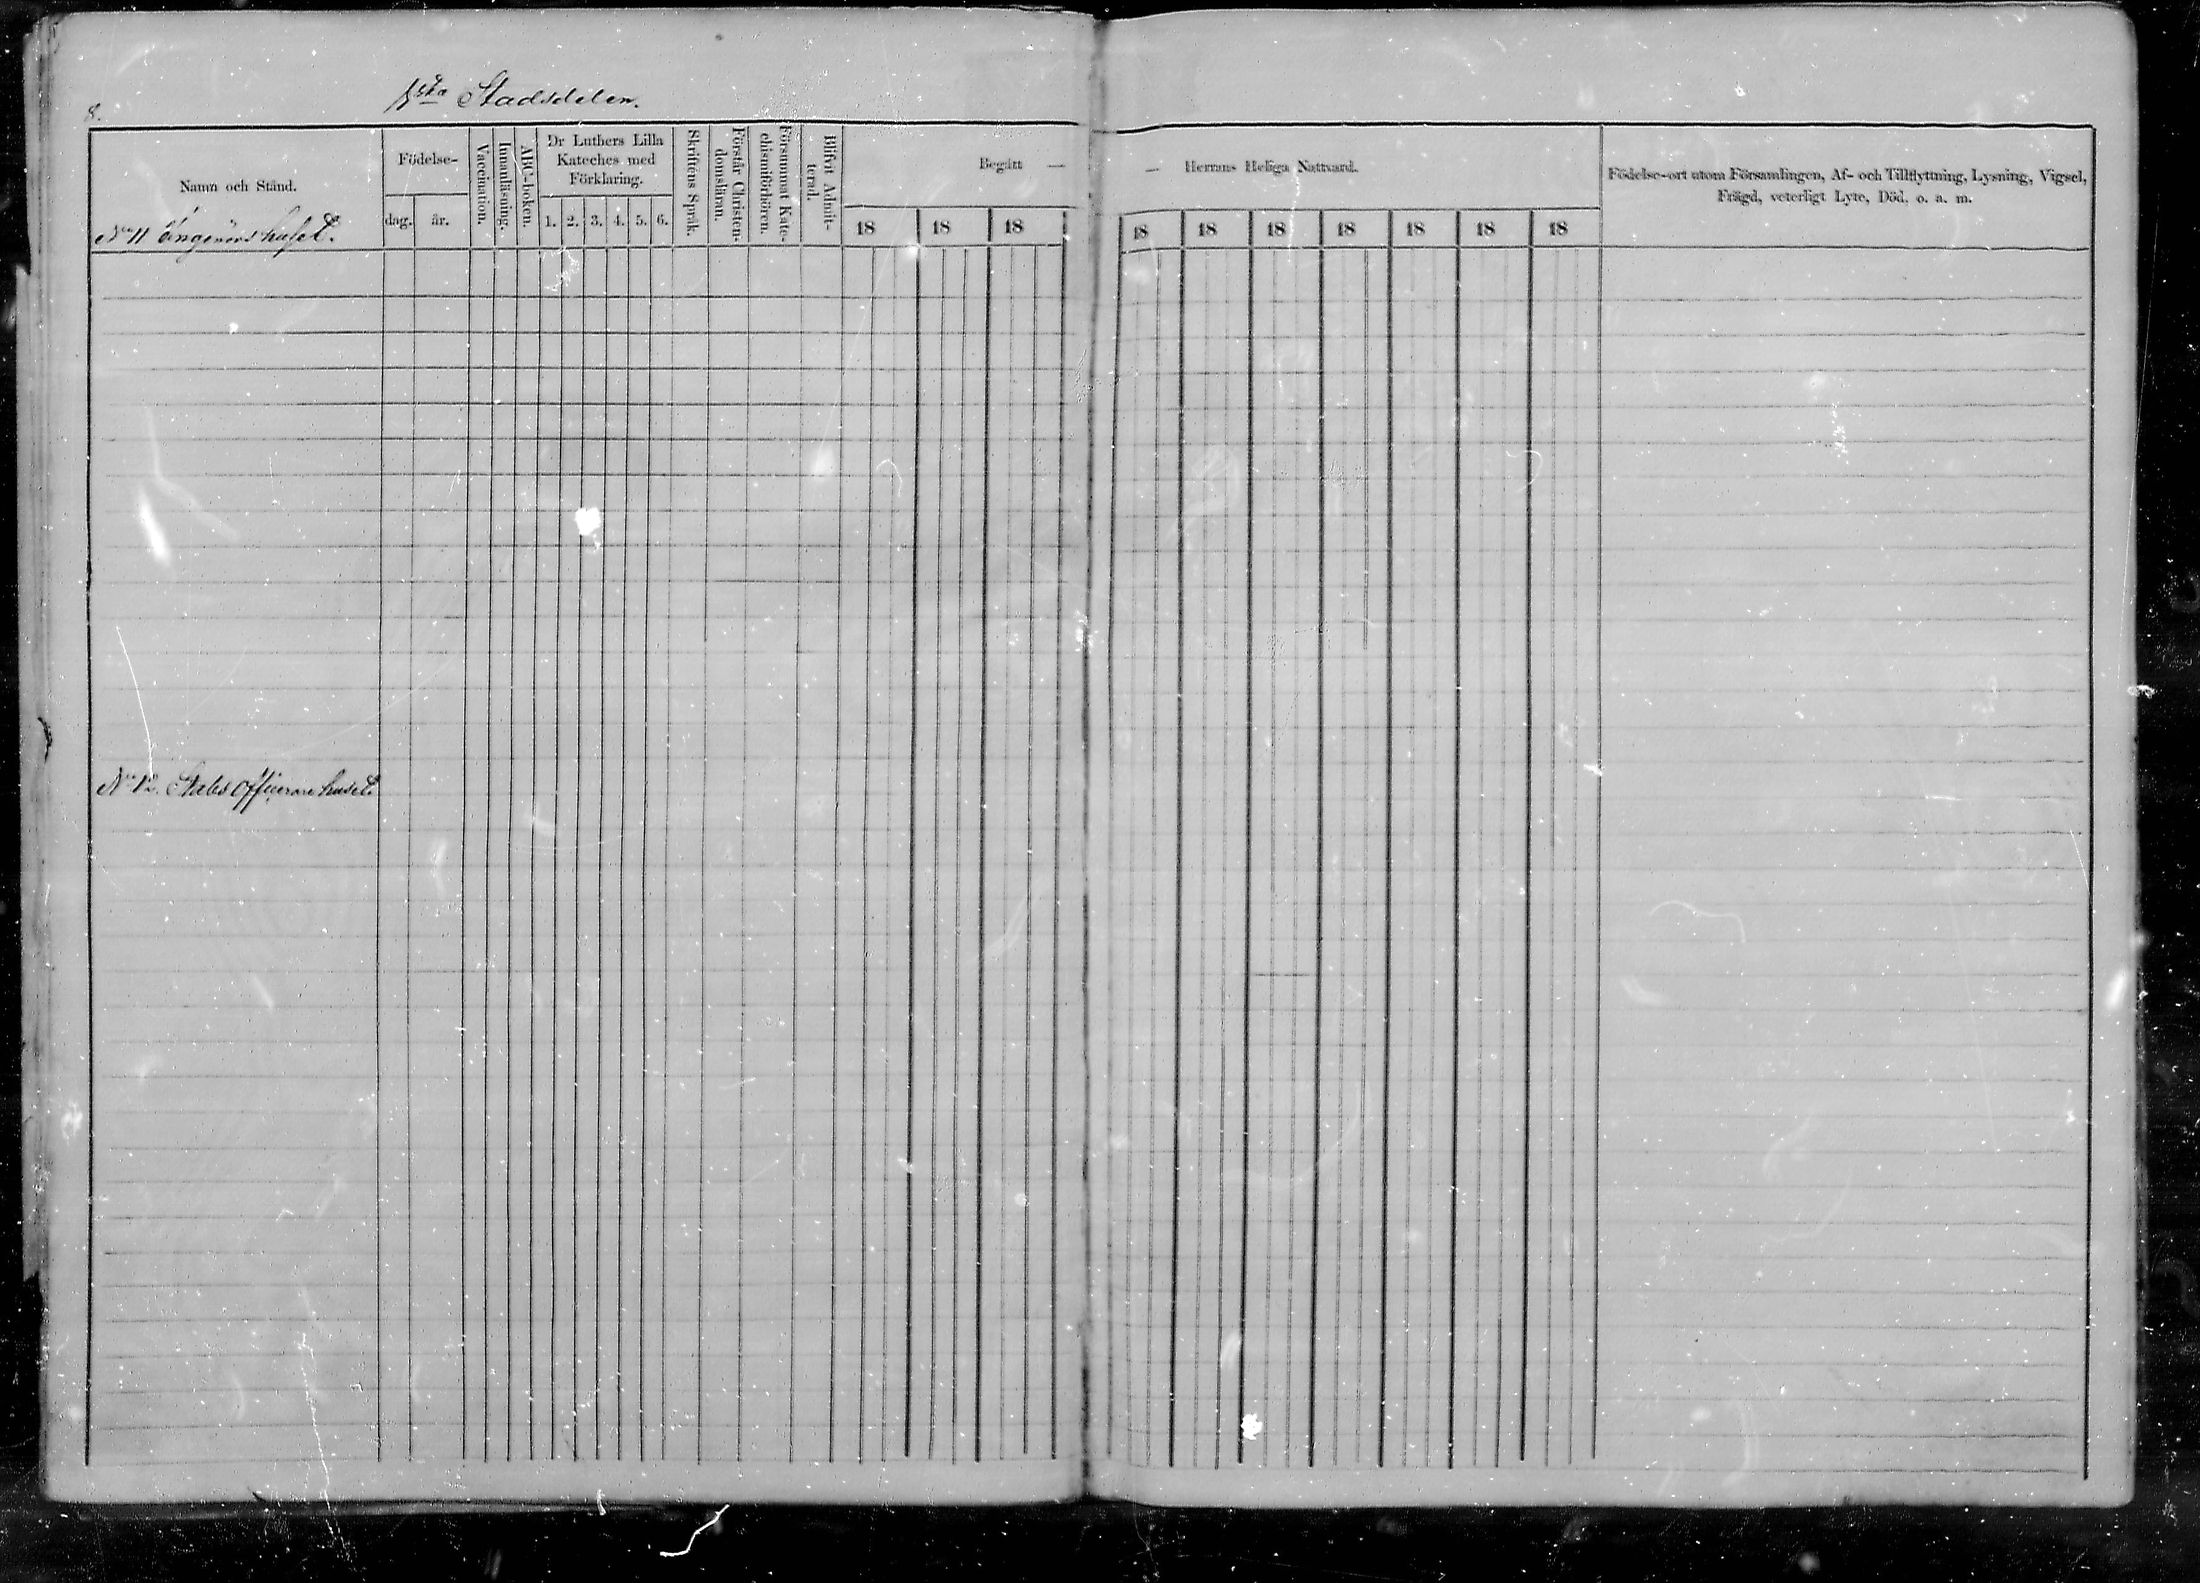 8.
1sta Stadsdelen.
Namn och Stånd.
No 11 Ingeniörshuset.
Födelse-
dag. år.
Vaccination.
Innanläsning.
ABC-boken.
Dr Luthers Lilla
Kateches med
Förklaring.
1. 2. 3. 4. 5. 6.
Skriftens Språk.
Förstår Christen-
domsläran.
Försummat Kate-
chismiförhören.
Blifvit Admit-
terad.
Begått —
18 18 18
— Herrans Heliga Nattvard.
18 18 18 18 18 18 18
Födelse-ort utom Församlingen, Af- och Tillflyttning, Lysning, Vigsel,
Frägd, veterligt Lyte, Död, o. a. m.
No 12. Stabs Officerare huset.